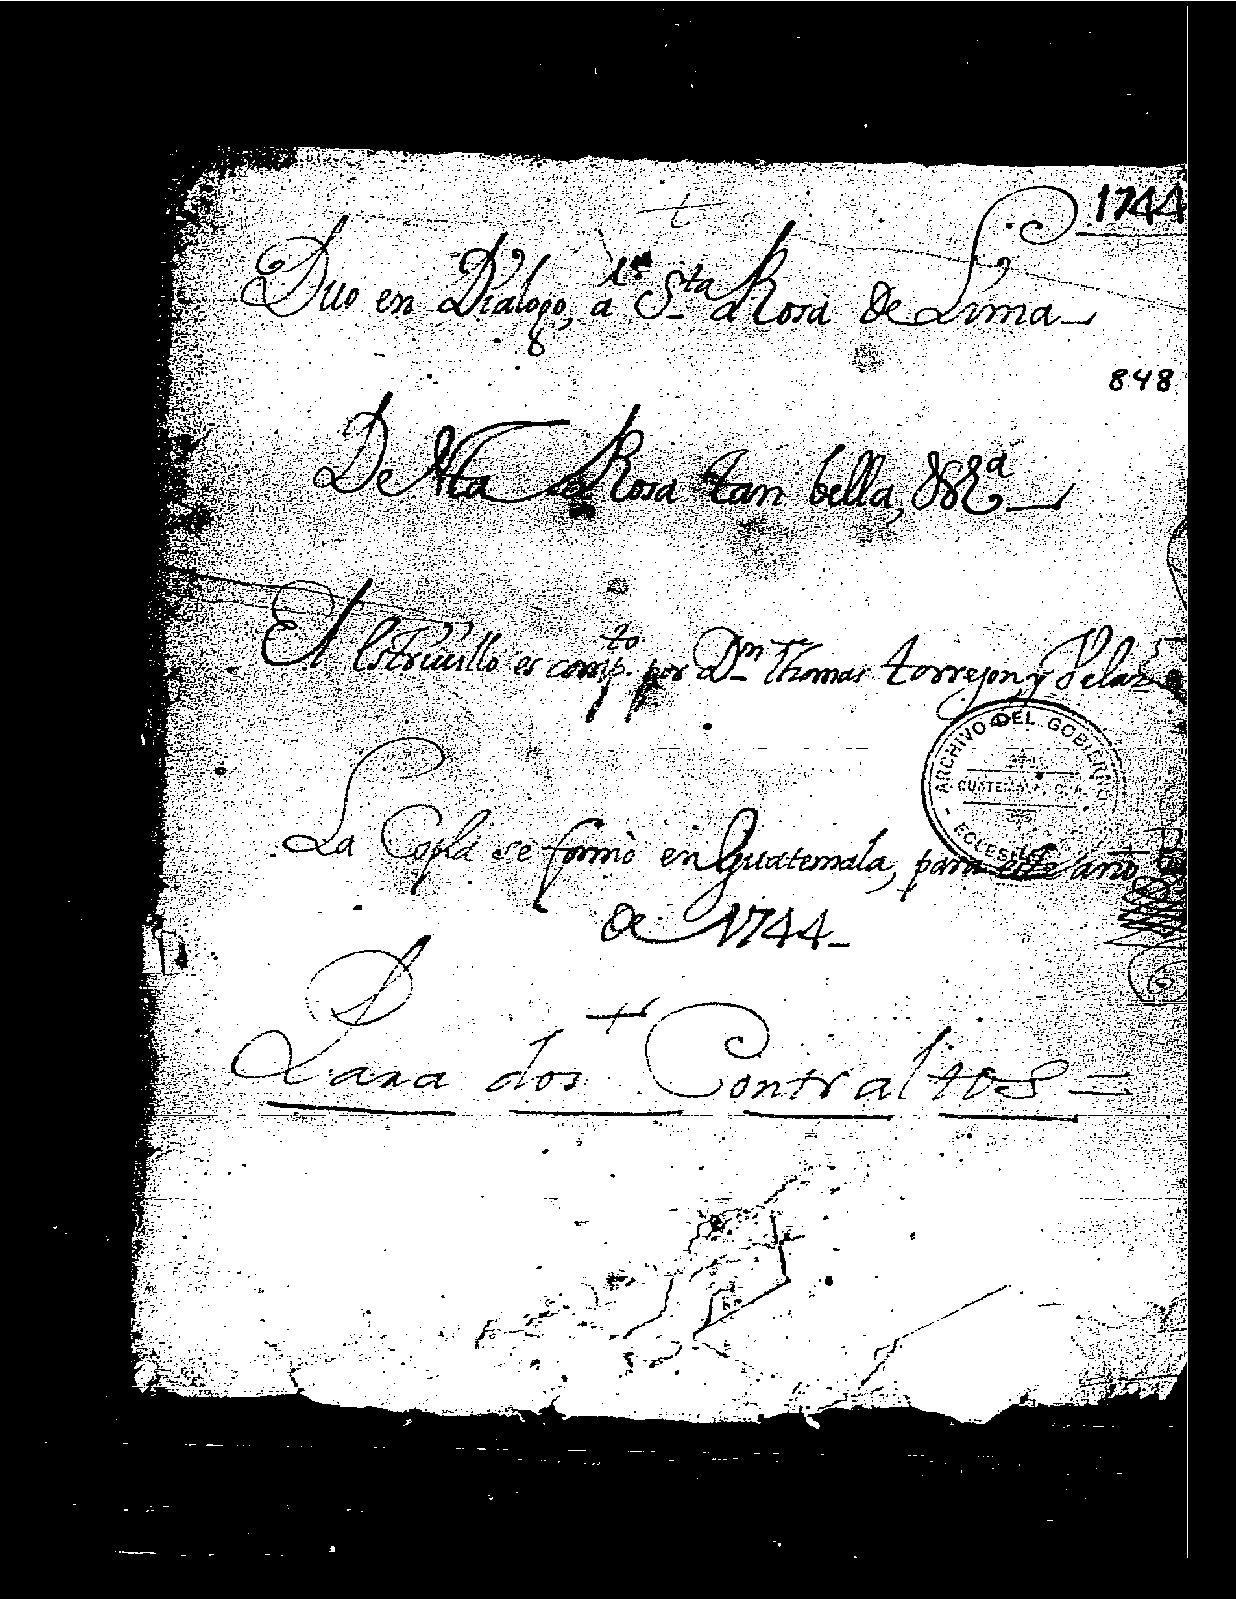 1744
Duo en Dialogo, a Sta Rosa De Lima
848
De esta Rosa tan bella, &ra
El Estriuillo es compto. por Dn Thomas torrejon, y Velazco
ARCHIVO DEL GOBIERNO
GUATEMALA, C. A.
ECLESIASTICO
La Copla se formò en Guatemala, para este año
de 1744
Para dos Contraltos =